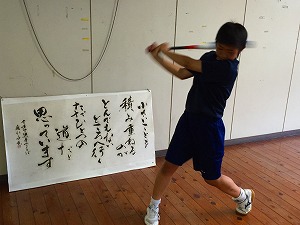 小さいことを
積み重ねるのが
とんでもない
ところへ行く
ただひとつの
道だと
思っています